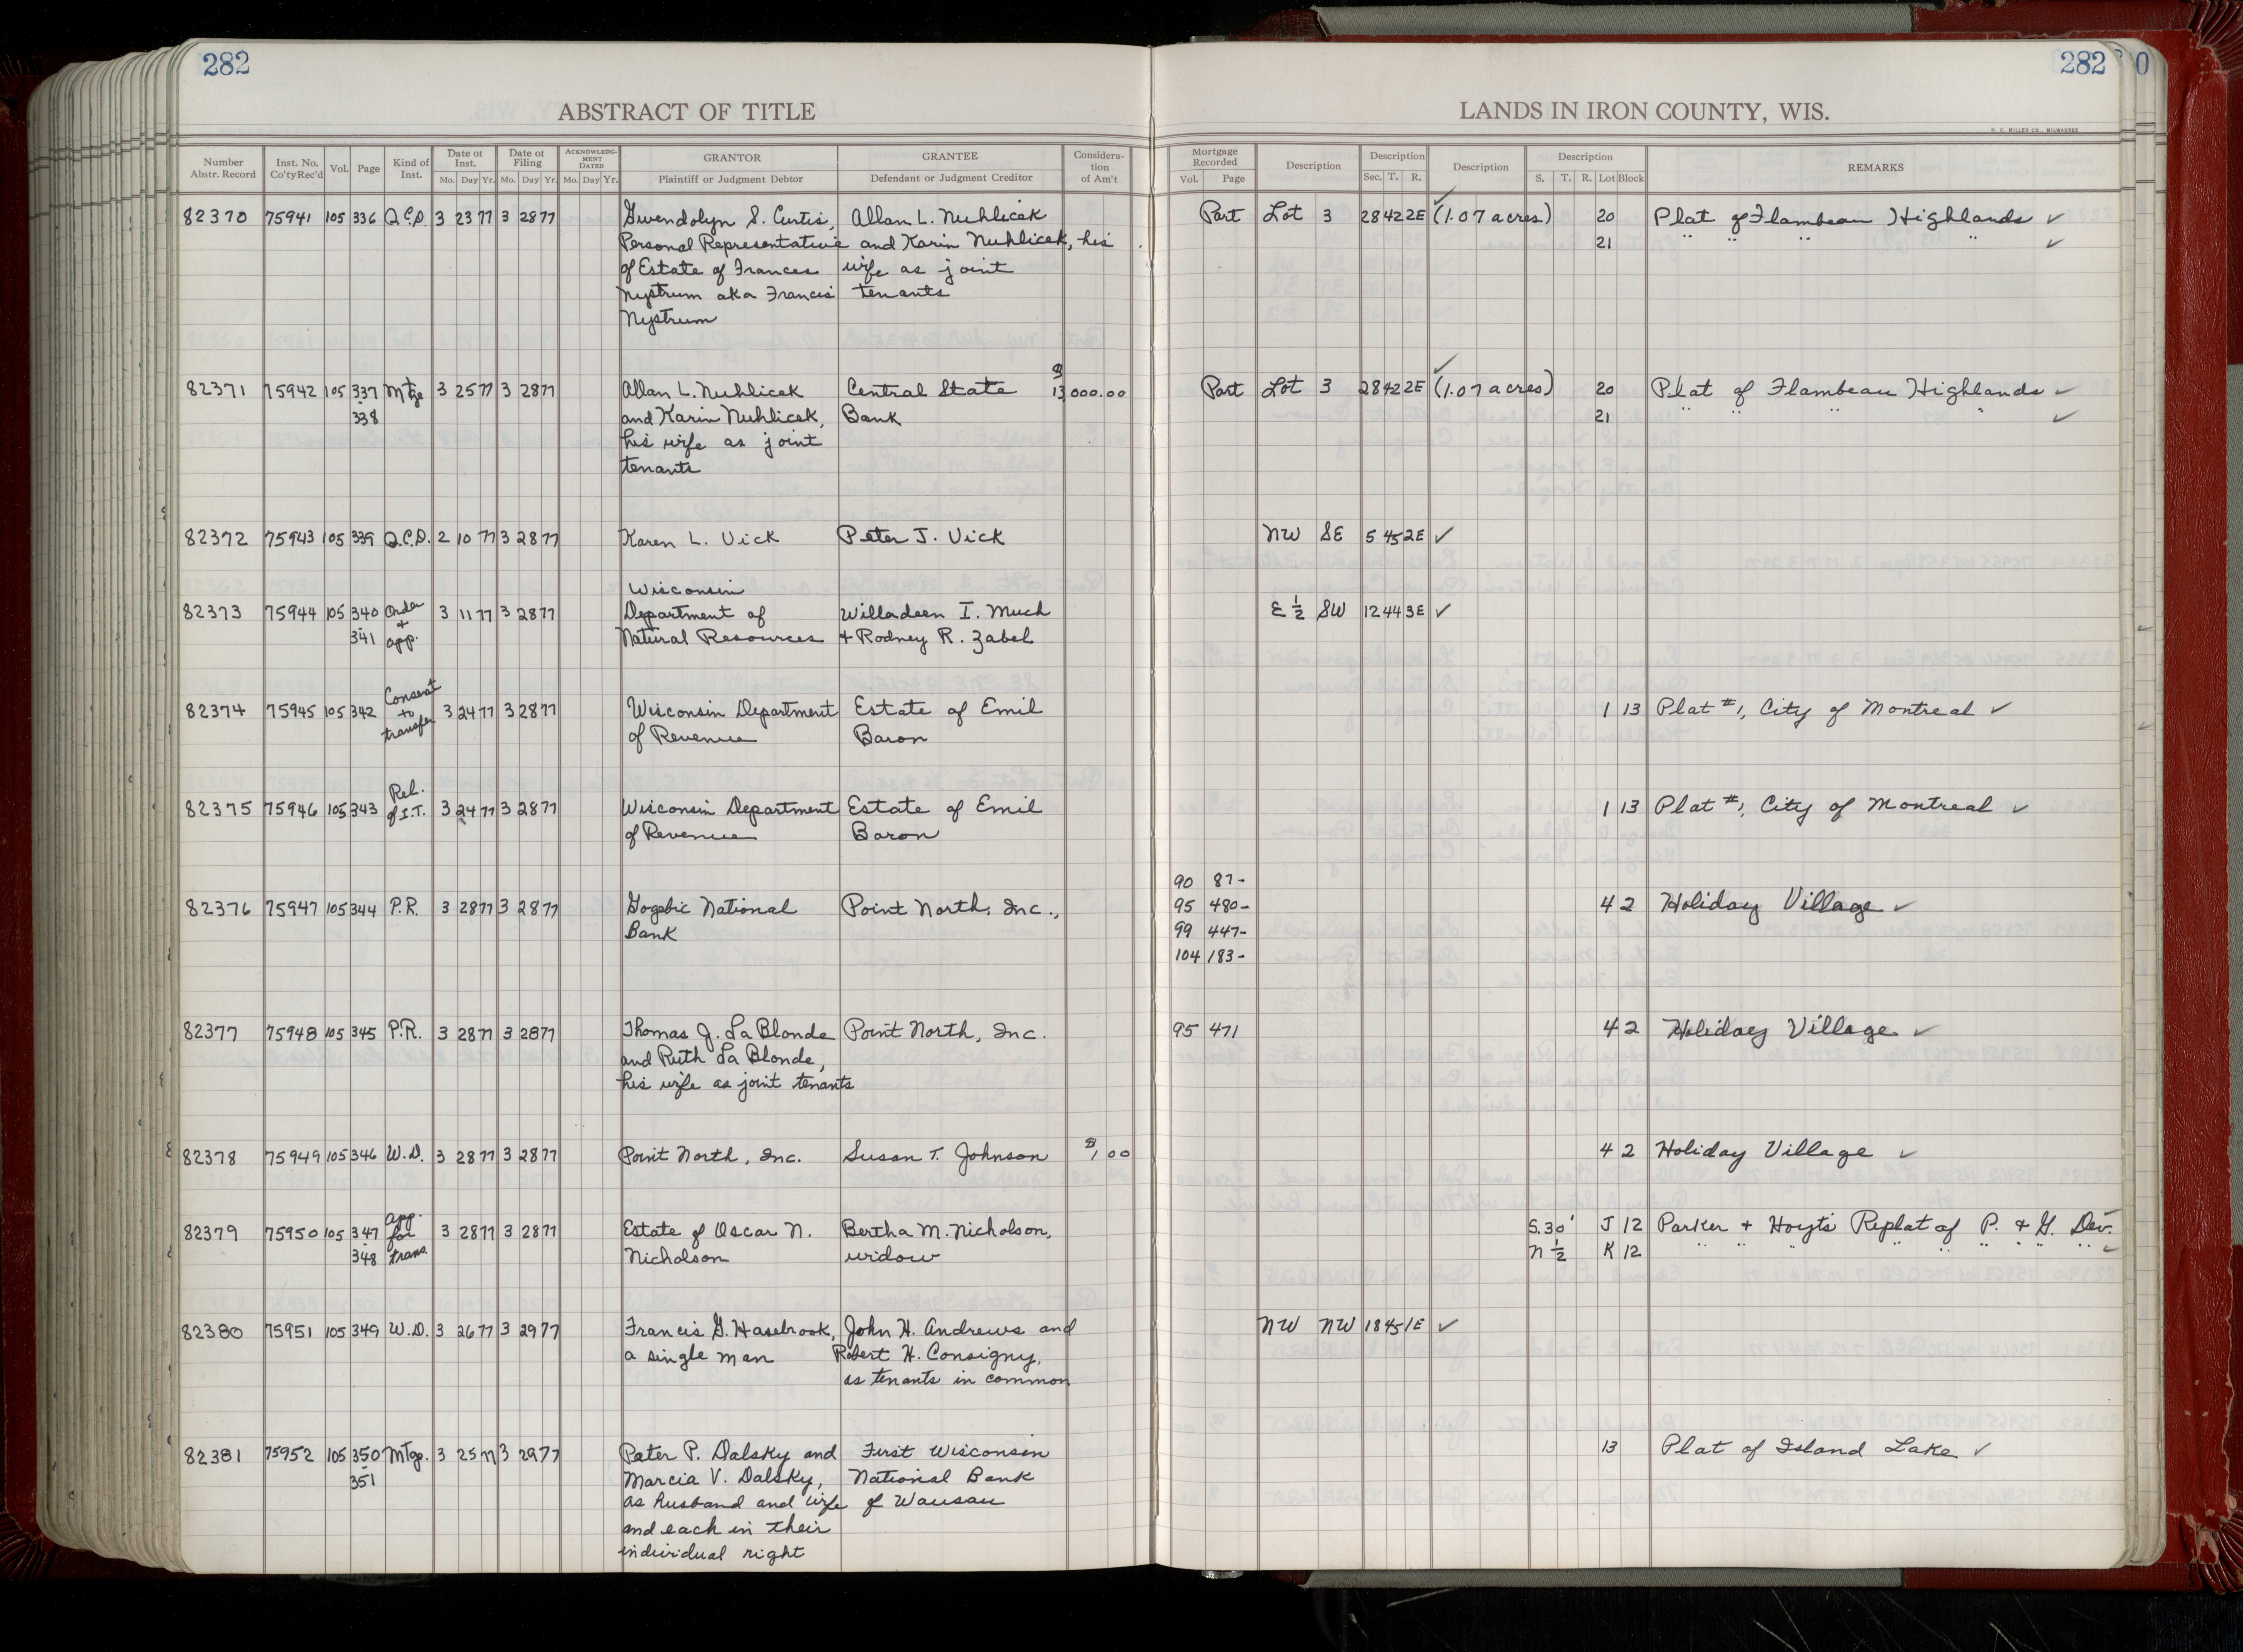 282
282
0
ABSTRACT OF TITLE
LANDS IN IRON COUNTY, WIS.
H. C. MILLER CO., MILWAUKEE
Number Abstr. Record Inst. No. Co'tyRec'd Vol. Page Kind of Inst. Date of Inst. Mo. Day Yr. Date of Filing Mo. Day Yr. ACKNOWLEDGMENT DATED Mo. Day Yr. GRANTOR Plaintiff or Judgment Debtor GRANTEE Defendant or Judgment Creditor Consideration of Am't Mortgage Recorded Vol. Page Description Description Sec. T. R. Description Description S. T. R. Lot Block REMARKS
82370 75941 105 336 Q.C.D. 3 23 77 3 28 77 Gwendolyn S. Curtis, Allan L. Nuhlicek Part Lot 3 28 42 2E (1.07 acres) 20 Plat of Flambeau Highlands ✓
Personal Representative and Karin Nuhlicek, his 21 " " " " ✓
of Estate of Frances wife as joint
Nystrum aka Francis tenants
Nystrum
82371 75942 105 337 Mtge 3 25 77 3 28 77 Allan L. Nuhlicek Central State $13,000.00 Part Lot 3 28 42 2E (1.07 acres) 20 Plat of Flambeau Highlands ✓
- 338 and Karin Nuhlicek, Bank 21 " " " " ✓
his wife as joint
tenants
82372 75943 105 339 Q.C.D. 2 10 77 3 28 77 Karen L. Vick Peter J. Vick NW SE 5 45 2E ✓
Wisconsin
82373 75944 105 340 Order 3 11 77 3 28 77 Department of Willadeen I. Much E ½ SW 12 44 3E ✓
- 341 + app. Natural Resources + Rodney R. Zabel
82374 75945 105 342 Consent to transfer 3 24 77 3 28 77 Wisconsin Department Estate of Emil 1 13 Plat #1, City of Montreal ✓
of Revenue Baron
82375 75946 105 343 Rel. of I.T. 3 24 77 3 28 77 Wisconsin Department Estate of Emil 1 13 Plat #1, City of Montreal ✓
of Revenue Baron
90 87-
82376 75947 105 344 P.R. 3 28 77 3 28 77 Gogebic National Point North, Inc., 95 480- 4 2 Holiday Village ✓
Bank 99 447-
104 183-
82377 75948 105 345 P.R. 3 28 77 3 28 77 Thomas J. LaBlonde Point North, Inc. 95 471 4 2 Holiday Village ✓
and Ruth LaBlonde,
his wife as joint tenants
82378 75949 105 346 W.D. 3 28 77 3 28 77 Point North, Inc. Susan T. Johnson $1.00 4 2 Holiday Village ✓
82379 75950 105 347 app. for trans. 3 28 77 3 28 77 Estate of Oscar N. Bertha M. Nicholson, S.30' J 12 Parker + Hoyts Replat of P. & G. Dev.
- 348 Nicholson widow N ½ K 12 " " " " " " " " ✓
82380 75951 105 349 W.D. 3 26 77 3 29 77 Francis G. Hasebrook, John H. Andrews and NW NW 18 45 1E ✓
a single man Robert H. Consigny,
as tenants in common
82381 75952 105 350 Mtge. 3 25 77 3 29 77 Peter P. Dalsky and First Wisconsin 13 Plat of Island Lake ✓
- 351 Marcia V. Dalsky, National Bank
as husband and wife of Wausau
and each in their
individual right